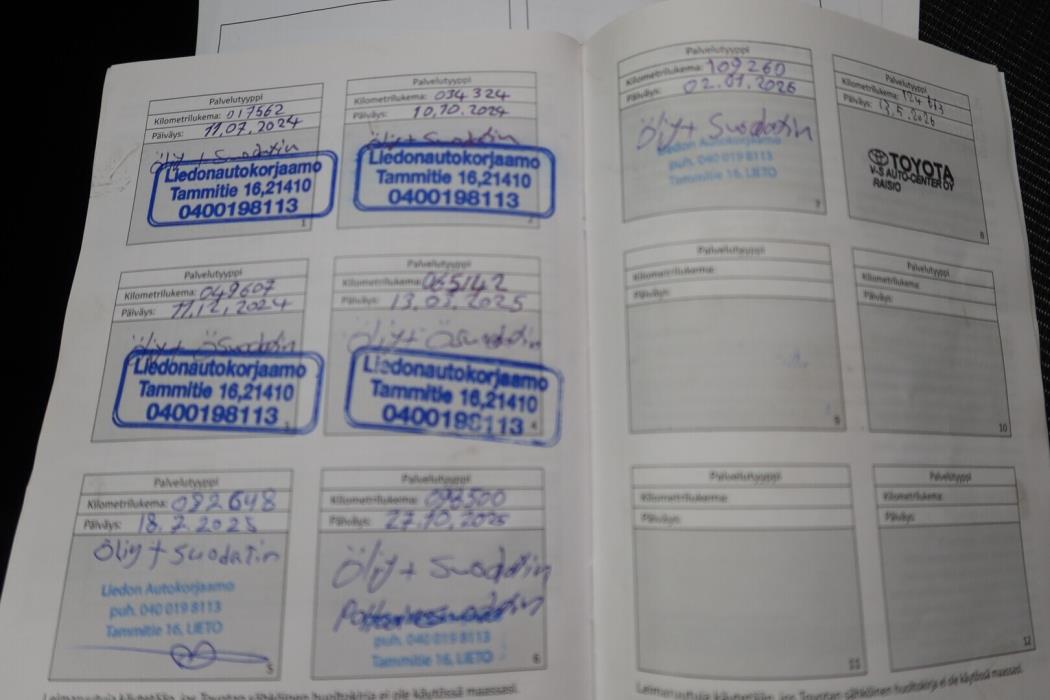 Palvelutyyppi
Kilometrilukema: 017562
Päiväys: 11.07.2024
Öljyt + Suodatin
Liedonautokorjaamo
Tammitie 16,21410
0400198113
1
Palvelutyyppi
Kilometrilukema: 034324
Päiväys: 10.10.2024
Öljyt + Suodatin
Liedonautokorjaamo
Tammitie 16,21410
0400198113
2
Palvelutyyppi
Kilometrilukema: 049607
Päiväys: 11.12.2024
Öljyt + Ösuodatin
Liedonautokorjaamo
Tammitie 16,21410
0400198113
3
Palvelutyyppi
Kilometrilukema: 065142
Päiväys: 13.03.2025
Öljyt Ösuodatin
Liedonautokorjaamo
Tammitie 16,21410
0400198113
4
Palvelutyyppi
Kilometrilukema: 082648
Päiväys: 18.7.2025
Öljy + Suodatin
Liedon Autokorjaamo
puh. 040 019 8113
Tammitie 16, LIETO
5
Palvelutyyppi
Kilometrilukema: 096500
Päiväys: 27.10.2025
Öljyt + Suodatin
puh. 040 019 8113
Tammitie 16, LIETO
6
Palvelutyyppi
Kilometrilukema: 109260
Päiväys: 02.01.2026
Öljyt Suodatin
Liedon Autokorjaamo
puh. 040 019 8113
Tammitie 16, LIETO
7
Palvelutyyppi
Kilometrilukema: 124
Päiväys: 13.5.2026
TOYOTA
V-S AUTO-CENTER OY
RAISIO
8
Palvelutyyppi
Kilometrilukema:
Päiväys:
9
Palvelutyyppi
Kilometrilukema:
Päiväys:
10
Palvelutyyppi
Kilometrilukema:
Päiväys:
11
Palvelutyyppi
Kilometrilukema:
Päiväys:
12